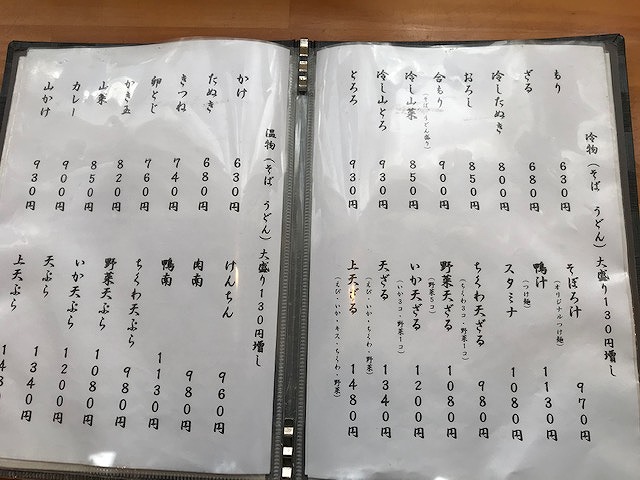 冷物(そば うどん)大盛り130円増し
もり 630円
ざる 680円
冷したぬき 800円
おろし 850円
合もり(そば・うどん盛り) 900円
冷し山菜 850円
冷し山とろ 930円
とろろ 930円
そぼろ汁(オリジナルつけ麺) 970円
鴨汁 1130円
スタミナ(つけ麺) 1080円
ちくわ天ざる(ちくわ3コ・野菜1コ) 980円
野菜天ざる(野菜5コ) 1080円
いか天ざる(いか3コ・野菜1コ) 1200円
天ざる(えび・いか・ちくわ・野菜) 1340円
上天ざる(えび・いか・キス・ちくわ・野菜) 1480円
温物(そば うどん)大盛り130円増し
かけ 630円
たぬき 680円
きつね 740円
卵とじ 760円
かき玉 820円
山菜 850円
カレー 900円
山かけ 930円
けんちん 960円
肉南 980円
鴨南 1130円
ちくわ天ぷら 980円
野菜天ぷら 1080円
いか天ぷら 1200円
天ぷら 1340円
上天ぷら 148